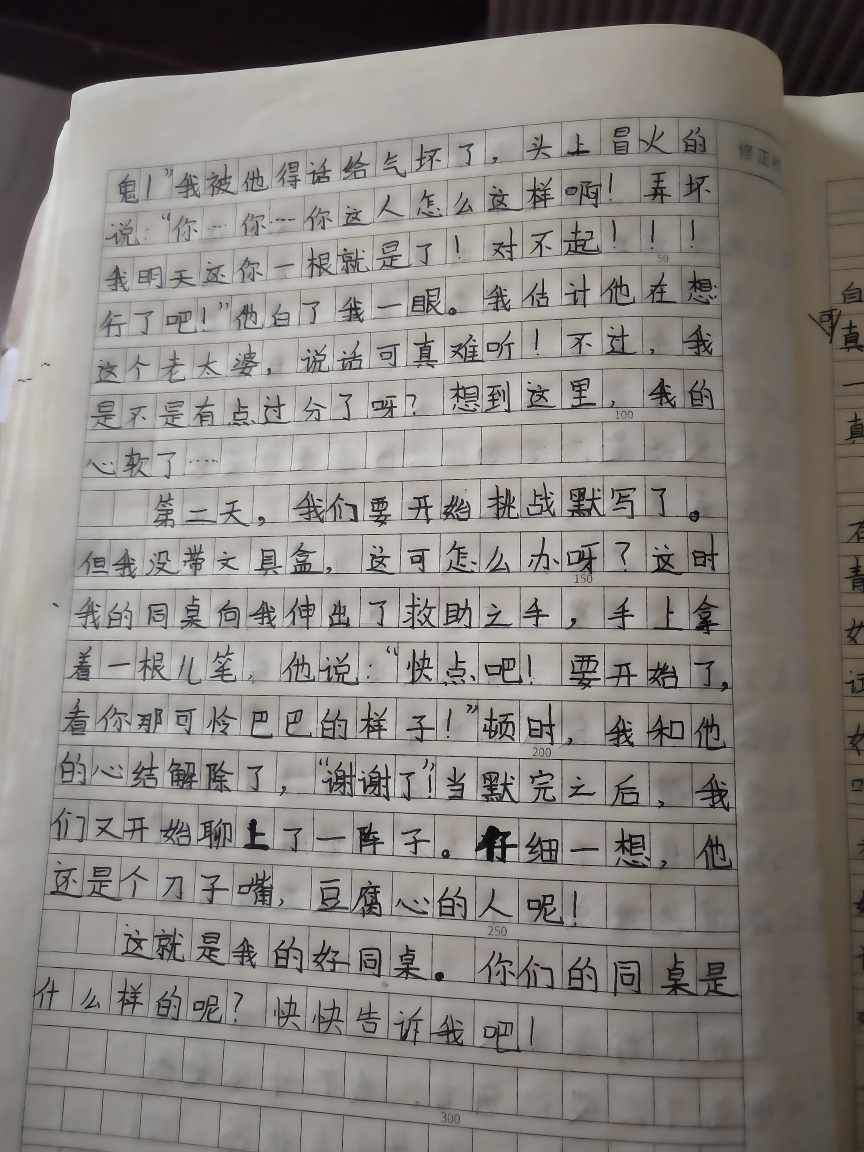 鬼！”我被他得话给气坏了，头上冒火的
说：“你……你……你这人怎么这样啊！弄坏
我明天还你一根就是了！对不起！！！
50
行了吧！”他白了我一眼。我估计他在想
这个老太婆，说话可真难听！不过，我
是不是有点过分了呀？想到这里，我的
100
心软了……
第二天，我们要开始挑战默写了。
但我没带文具盒，这可怎么办呀？这时
150
我的同桌向我伸出了救助之手，手上拿
着一根儿笔，他说：“快点吧！要开始了，
看你那可怜巴巴的样子！”顿时，我和他
200
的心结解除了，“谢谢了”！当默完之后，我
们又开始聊上了一阵子。仔细一想，他
还是个刀子嘴，豆腐心的人呢！
250
这就是我的好同桌。你们的同桌是
什么样的呢？快快告诉我吧！
300
修正
自
可
真
一
真
石
青